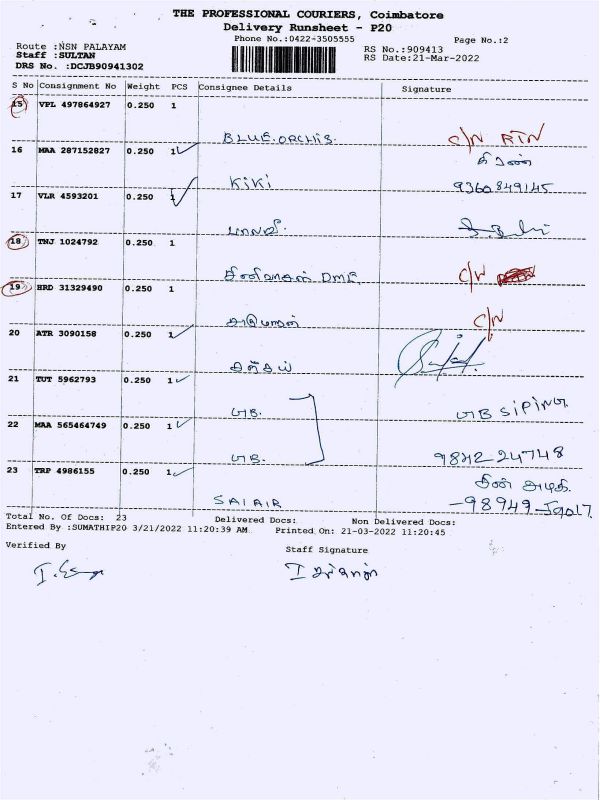 THE PROFESSIONAL COURIERS, Coimbatore
Delivery Runsheet - P20
Phone No.:0422-3505555
Page No.:2
Route :NSN PALAYAM
RS No.:909413
Staff :SULTAN
RS Date:21-Mar-2022
DRS No. :DCJB90941302
S No Consignment No Weight PCS Consignee Details Signature
15 VPL 497864927 0.250 1
BLUE.ORCHIS. C/N RTN
16 MAA 287152827 0.250 1 கிரண்
KIKI 9360849145
17 VLR 4593201 0.250 1
பாலாஜி.
18 TNJ 1024792 0.250 1
DMR C/N
19 HRD 31329490 0.250 1
C/N
20 ATR 3090158 0.250 1
சஞ்சய்
21 TUT 5962793 0.250 1
GB. GB SIPING
22 MAA 565464749 0.250 1
GB. 9842224748
23 TRP 4986155 0.250 1
SAI AIR
Total No. Of Docs: 23 Delivered Docs: Non Delivered Docs:
Entered By :SUMATHIP20 3/21/2022 11:20:39 AM Printed On: 21-03-2022 11:20:45
Verified By
Staff Signature